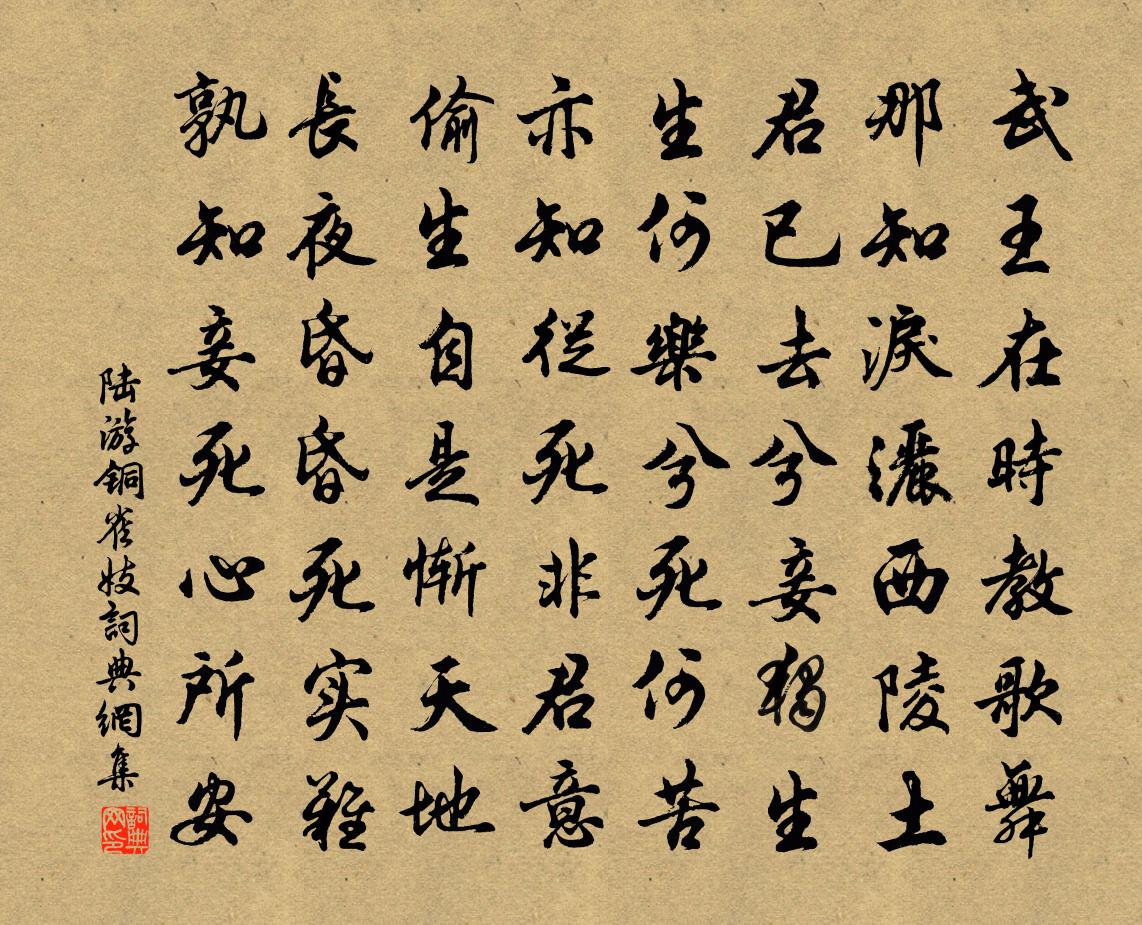 武王在時教歌舞
那知淚灑西陵土
君已去兮妾獨生
生何樂兮死何苦
亦知從死非君意
偷生自是慚天地
長夜昏昏死实難
孰知妾死心所安
陆游銅雀妓詞典網集
詞典网印